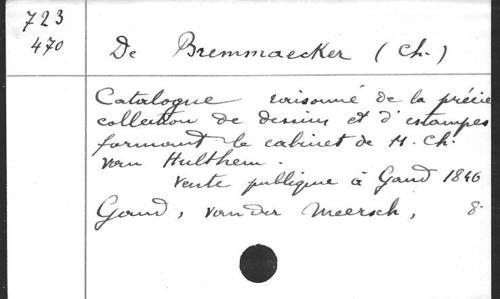 723
470
De Bremmaecker (Ch.)
Catalogue raisonné de la précie
collection de dessins et d'estampes
formant le cabinet de M. Ch.
van Hulthem.
Vente publique à Gand 1846
Gand, van der Meersch, 8.